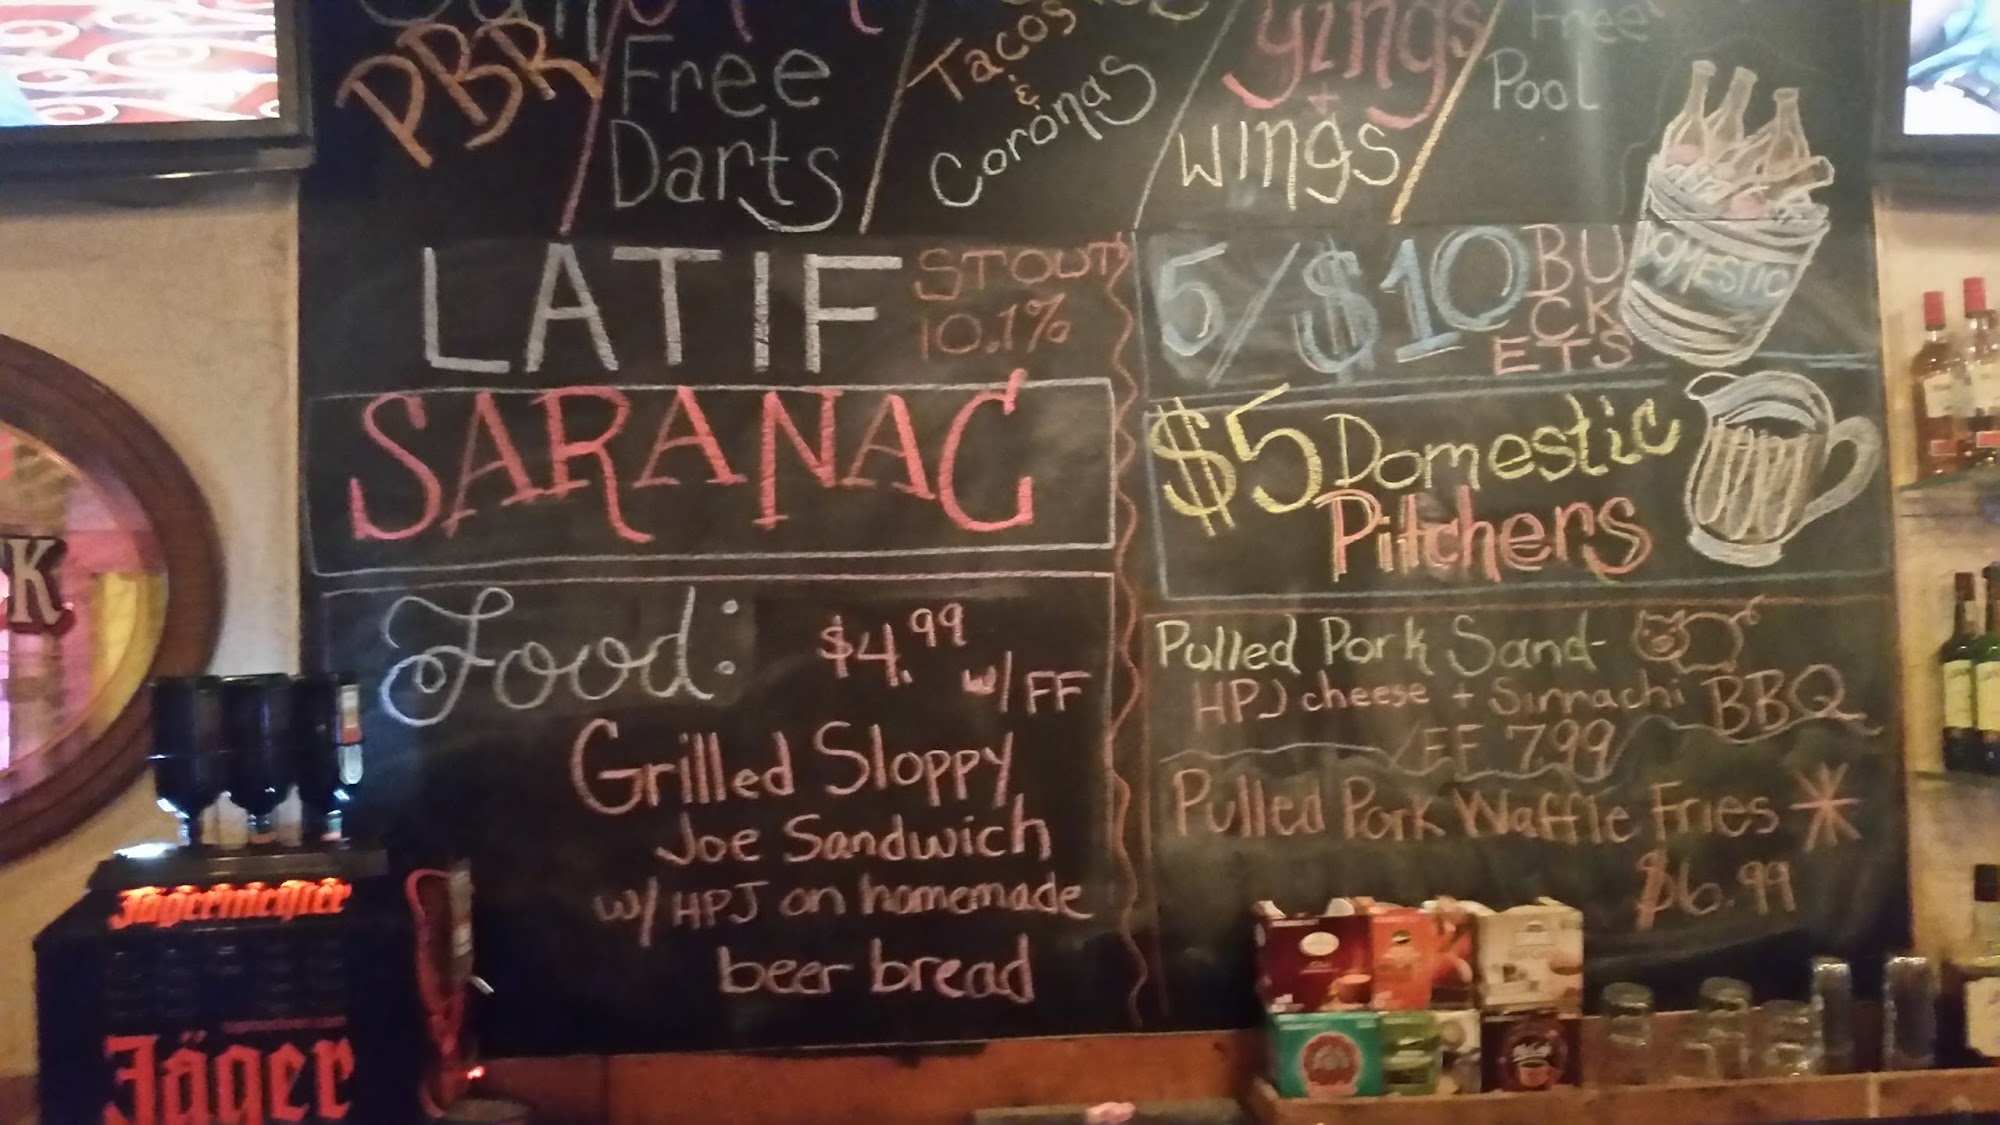 PBR
Free
Darts
Tacos
&
Coronas
Yings
+
Wings
Free
Pool
LATIF
STOUT
10.1%
SARANAC
Food:
$4.99
w/ FF
Grilled Sloppy
Joe Sandwich
w/ HPJ on homemade
beer bread
5/$10
BU
CK
ETS
DOMESTIC
$5 Domestic
Pitchers
Pulled Pork Sand-
HPJ cheese + Sirrachi BBQ
FF 7.99
Pulled Pork Waffle Fries *
$6.99
K
Jägermeister
Jäger